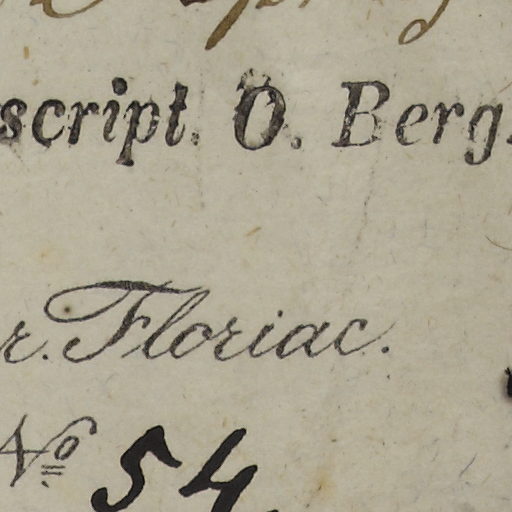 script. O. Berg.
r. Floriac.
No 54.